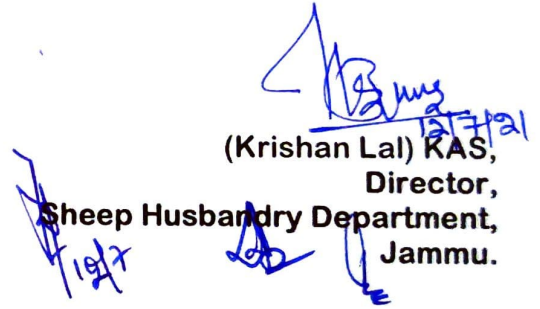 12/7/21
(Krishan Lal) KAS,
Director,
Sheep Husbandry Department,
Jammu.
12/7